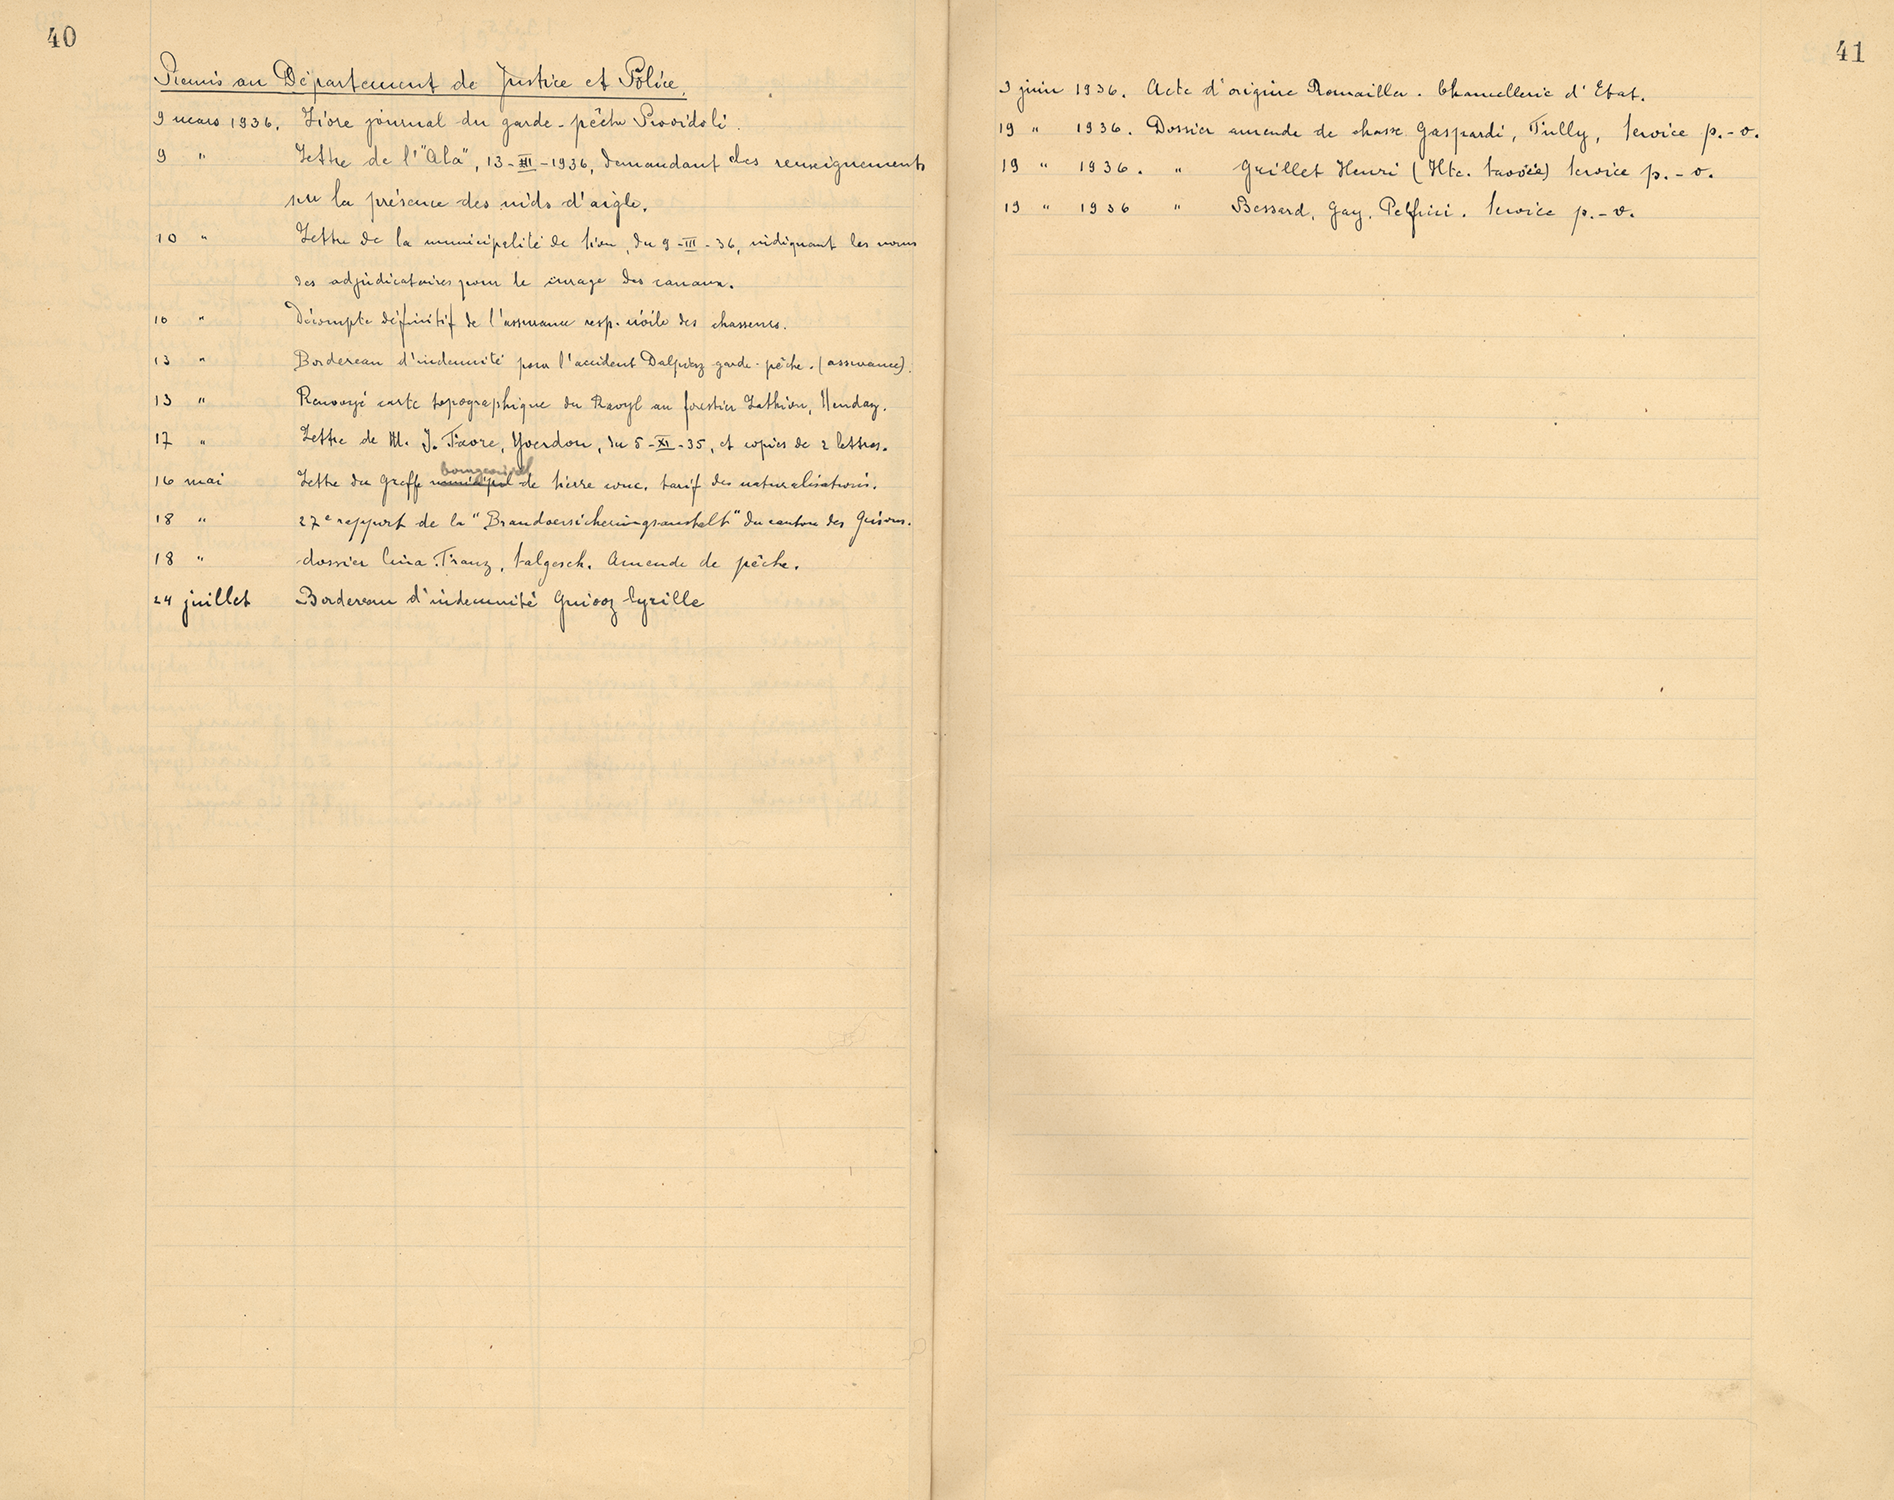 40
Remis au Département de Justice et Police.
9 mars 1936. Livre journal du garde-pêche Provideli.
9 " Lettre de l'"Ala", 13-XII-1936, demandant des renseignements
sur la présence des nids d'aigle.
10 " Lettre de la municipalité de Sion, du 9-III-36, indiquant les noms
des adjudicataires pour le curage des canaux.
10 " Décompte définitif de l'assurance resp. civile des chasseurs.
13 " Bordereau d'indemnité pour l'accident Dalpiaz garde-pêche. (assurance).
13 " Renvoyé carte topographique du Rawyl au forestier Lathion, Nendaz.
17 " Lettre de M. J. Favre, Yverdon, du 5-XI-35, et copies de 2 lettres.
bourgeoisial
16 mai Lettre du greffe municipal de Sierre conc. tarif des naturalisations.
18 " 27e rapport de la "Brandversicherungsanstalt" du canton des Grisons.
18 " dossier Cina Franz, Salgesch. Amende de pêche.
24 juillet Bordereau d'indemnité Guiooz Cyrille
41
9 juin 1936. Acte d'origine Romailler. Chancellerie d'Etat.
19 " 1936. Dossier amende de chasse Gaspardi, Fully, Service p.-v.
19 " 1936. " Grillet Henri (Hte. Savoie) Service p.-v.
19 " 1936 " Bessard, Gay, Pelfini. Service p.-v.